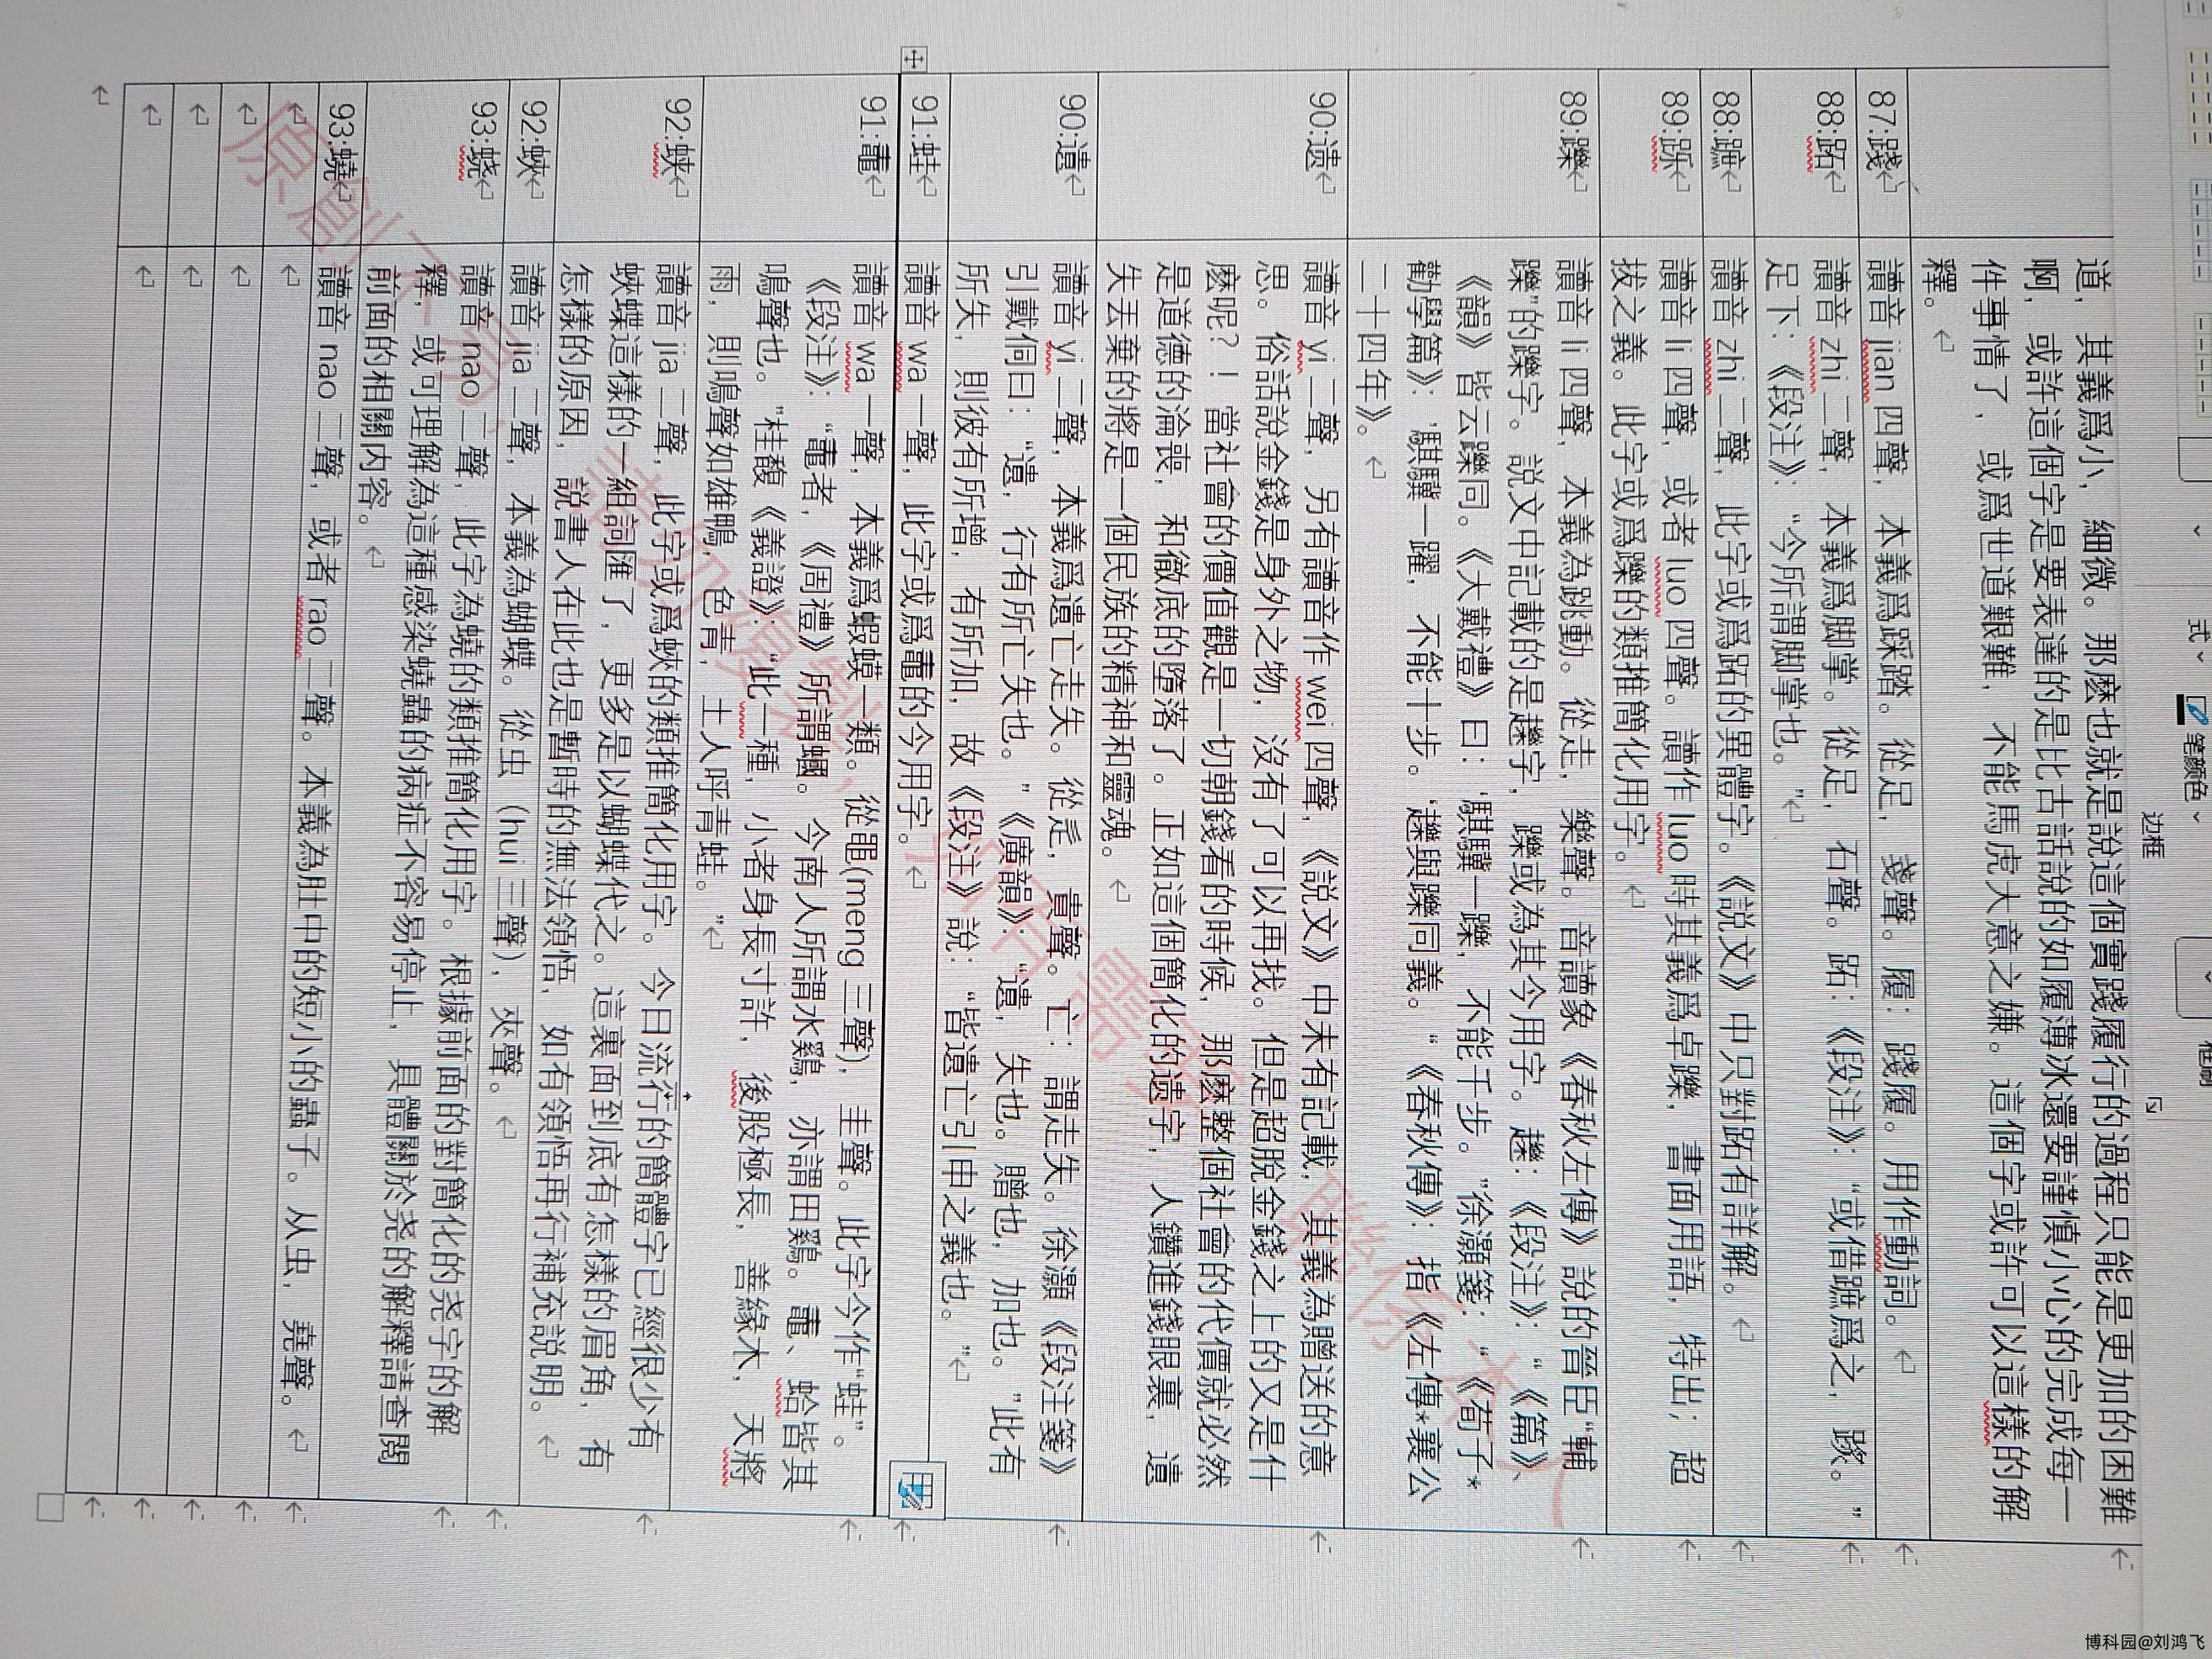 笔颜色
边框
式
道，其義爲小，細微。那麽也就是說這個實踐履行的過程只能是更加的困難
啊，或許這個字是要表達的是比古話説的如履薄冰還要謹慎小心的完成每一
件事情了，或爲世道艱難，不能馬虎大意之嫌。這個字或許可以這樣的解
釋。
87:踐
讀音 jian 四聲，本義爲踩踏。從足，戔聲。履：踐履。用作動詞。
88:跖
讀音 zhi 二聲，本義爲脚掌。從足，石聲。跖：《段注》：“或借蹠爲之，踐。”
足下：《段注》：“今所謂脚掌也。”
88:蹠
讀音 zhi 二聲，此字或爲跖的異體字。《説文》中只對跖有詳解。
89:跞
讀音 li 四聲，或者 luo 四聲。讀作 luo 時其義爲卓躒，書面用語，特出；超
拔之義。此字或爲躒的類推簡化用字。
89:躒
讀音 li 四聲，本義為跳動。從走，樂聲。音讀象《春秋左傳》説的晉臣“輔
躒”的躒字。説文中記載的是趮字，躒或為其今用字。趮：《段注》：“《篇》、
《韻》皆云躒同。《大戴禮》曰：‘騏驥一躒，不能千步。’”徐灝箋：“《荀子*
勸學篇》：‘騏驥一躍，不能十步。’趮與躒同義。“《春秋傳》：指《左傳*襄公
二十四年》。
90:遗
讀音 yi 二聲，另有讀音作 wei 四聲，《說文》中未有記載，其義為贈送的意
思。俗話說金錢是身外之物，沒有了可以再找。但是超脫金錢之上的又是什
麽呢？！當社會的價值觀是一切朝錢看的時候，那麽整個社會的代價就必然
是道德的淪喪，和徹底的墮落了。正如這個簡化的遗字，人鑽進錢眼裏，遺
失去棄的將是一個民族的精神和靈魂。
90:遺
讀音 yi 二聲，本義爲遺亡走失。從辵，貴聲。亡：謂走失。徐灝《段注箋》
引戴侗曰：“遺，行有所亡失也。”《廣韻》：“遺，失也。贈也，加也。”此有
所失，則彼有所增，有所加，故《段注》說：“皆遺亡引申之義也。”
91:蛙
讀音 wa 一聲，此字或爲鼃的今用字。
91:鼃
讀音 wa 一聲，本義爲蝦蟆一類。從黽(meng 三聲)，圭聲。此字今作“蛙”。
《段注》：“鼃者，《周禮》所謂蟈。今南人所謂水鷄，亦謂田鷄。鼃、蛤皆其
鳴聲也。”桂馥《義證》：“此一種，小者身長寸許，後股極長，善緣木，天將
雨，則鳴聲如雄鴨，色青，土人呼青蛙。”
92:蛱
讀音 jia 二聲，此字或爲蛺的類推簡化用字。今日流行的簡體字已經很少有
蛺蝶這樣的一組詞匯了，更多是以蝴蝶代之。這裏面到底有怎樣的眉角，有
怎樣的原因，說書人在此也是暫時的無法領悟，如有領悟再行補充説明。
92:蛺
讀音 jia 二聲，本義為蝴蝶。從虫（hui 三聲），夾聲。
93:蛲
讀音 nao 二聲，此字為蟯的類推簡化用字。根據前面的對簡化的尧字的解
釋，或可理解為這種感染蟯蟲的病症不容易停止，具體關於尧的解釋請查閱
前面的相關内容。
93:蟯
讀音 nao 二聲，或者 rao 二聲。本義為肚中的短小的蟲子。从虫，堯聲。
博科园@刘鸿飞